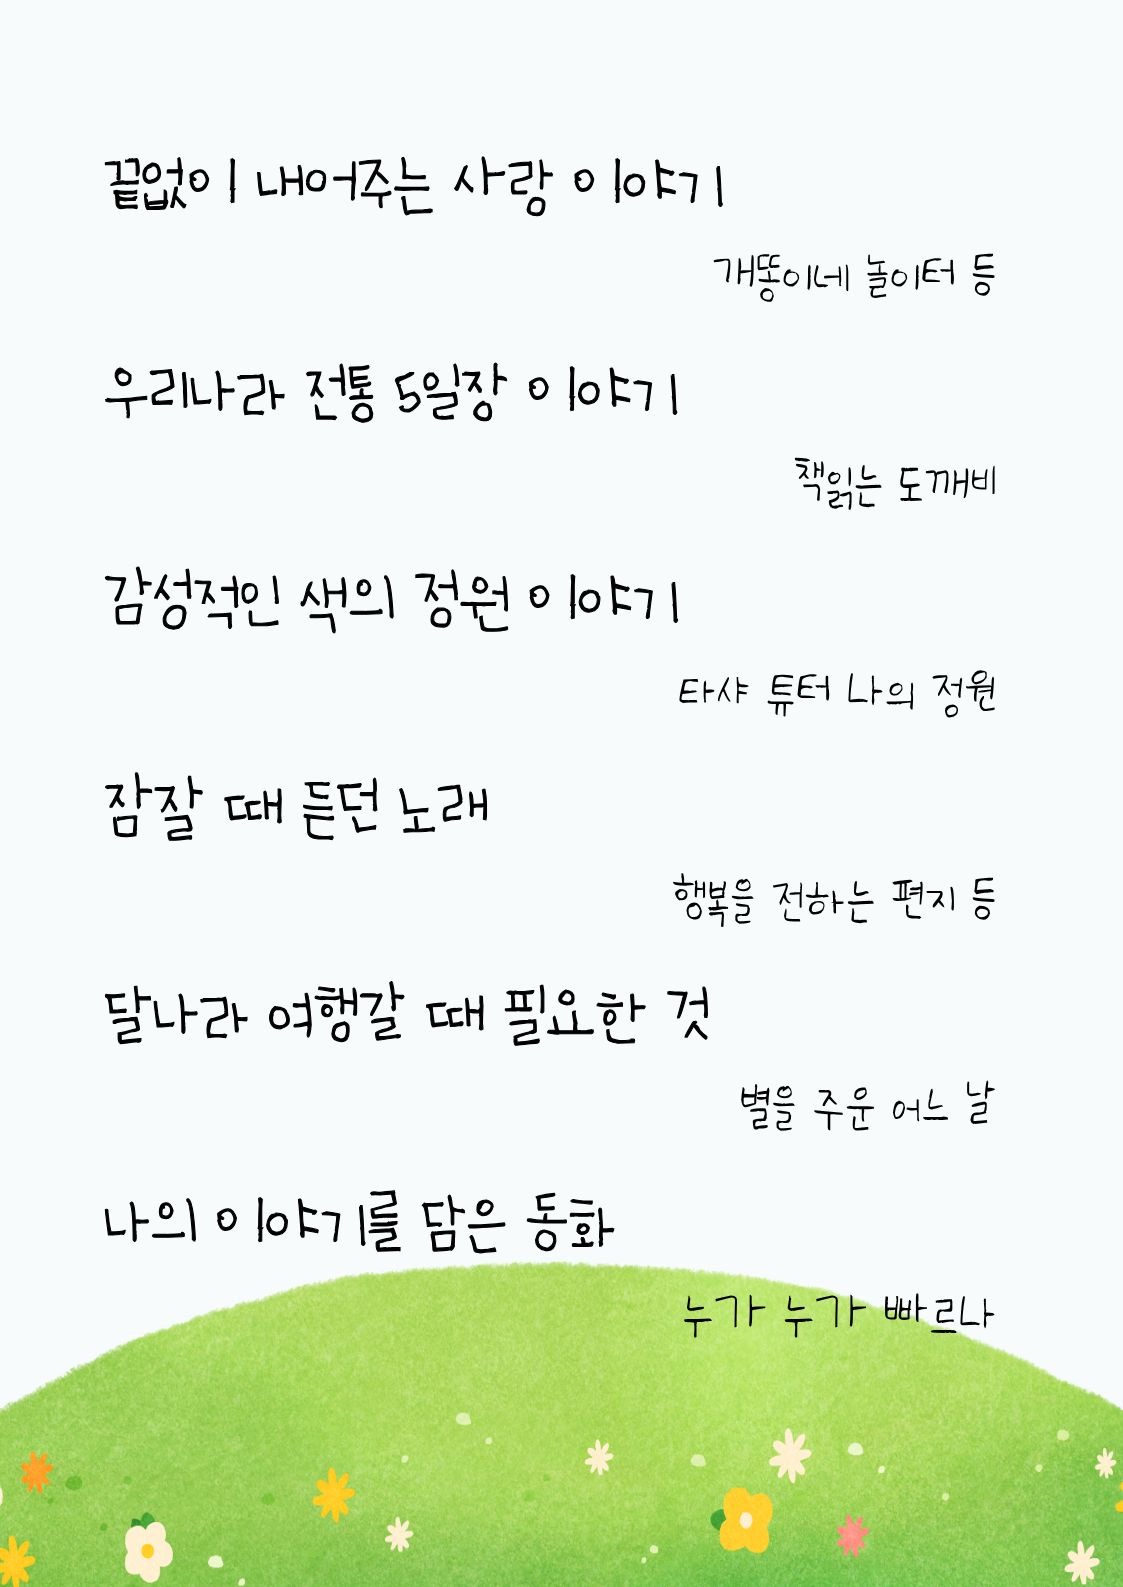 끝없이 내어주는 사랑 이야기
개똥이네 놀이터 등
우리나라 전통 5일장 이야기
책읽는 도깨비
감성적인 색의 정원 이야기
타샤 튜터 나의 정원
잠잘 때 듣던 노래
행복을 전하는 편지 등
달나라 여행갈 때 필요한 것
별을 주운 어느 날
나의 이야기를 담은 동화
누가 누가 빠르나